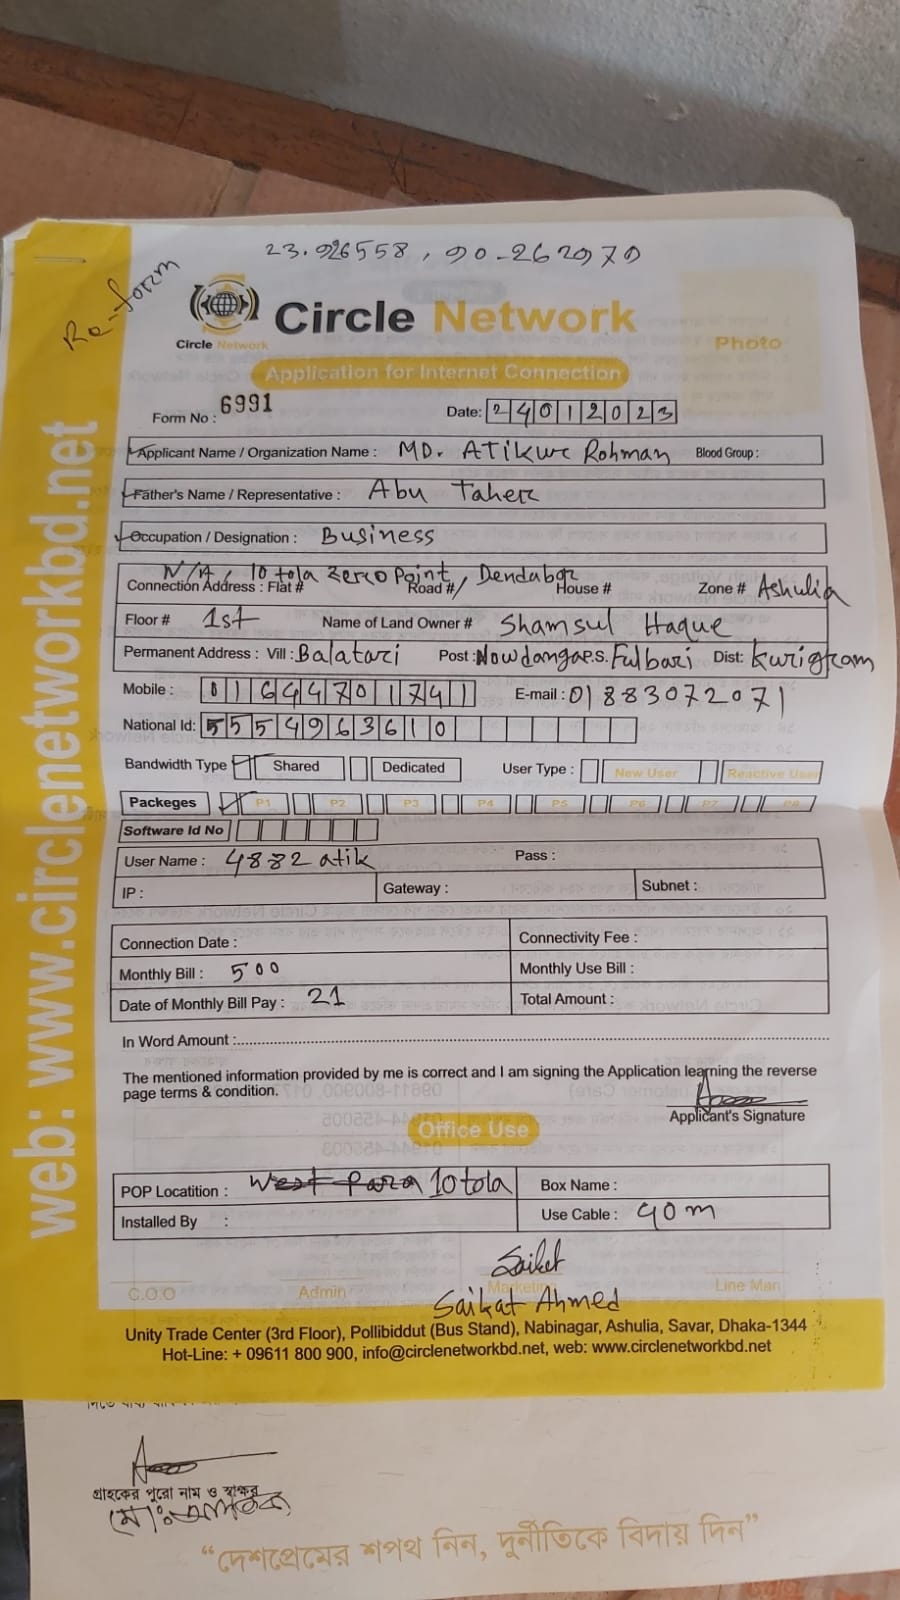 23.926558, 90.262970
Re-form
Circle Network
Circle Network
Photo
Application for Internet Connection
Form No : 6991
Date: 24012023
Applicant Name / Organization Name : MD. ATikur Rohman Blood Group :
Father's Name / Representative : Abu Taher
Occupation / Designation : Business
N/A, 10 tola Zero Point, Dendabor
Connection Address : Flat # Road # House # Zone # Ashulia
Floor # 1st Name of Land Owner # Shamsul Haque
Permanent Address : Vill : Balatari Post : Nowdanga P.S. Fulbari Dist: Kurigram
Mobile : 01644701741 E-mail : 01883072071
National Id: 5554963610
Bandwidth Type Shared Dedicated User Type : New User Reactive User
Packeges P1 P2 P3 P4 P5 P6 P7 P8
Software Id No
User Name : 4882 atik Pass :
IP : Gateway : Subnet :
Connection Date : Connectivity Fee :
Monthly Bill : 500 Monthly Use Bill :
Date of Monthly Bill Pay : 21 Total Amount :
In Word Amount :
The mentioned information provided by me is correct and I am signing the Application learning the reverse
page terms & condition.
Applicant's Signature
Office Use
POP Locatition : West Para 10tola Box Name :
Installed By : Use Cable : 90m
Saikat
C.O.O Admin Marketing Line Man
Saikat Ahmed
Unity Trade Center (3rd Floor), Pollibiddut (Bus Stand), Nabinagar, Ashulia, Savar, Dhaka-1344
Hot-Line: + 09611 800 900, info@circlenetworkbd.net, web: www.circlenetworkbd.net
web: www.circlenetworkbd.net
গ্রাহকের পুরো নাম ও স্বাক্ষর
মো: আতিক
“দেশপ্রেমের শপথ নিন, দুর্নীতিকে বিদায় দিন”